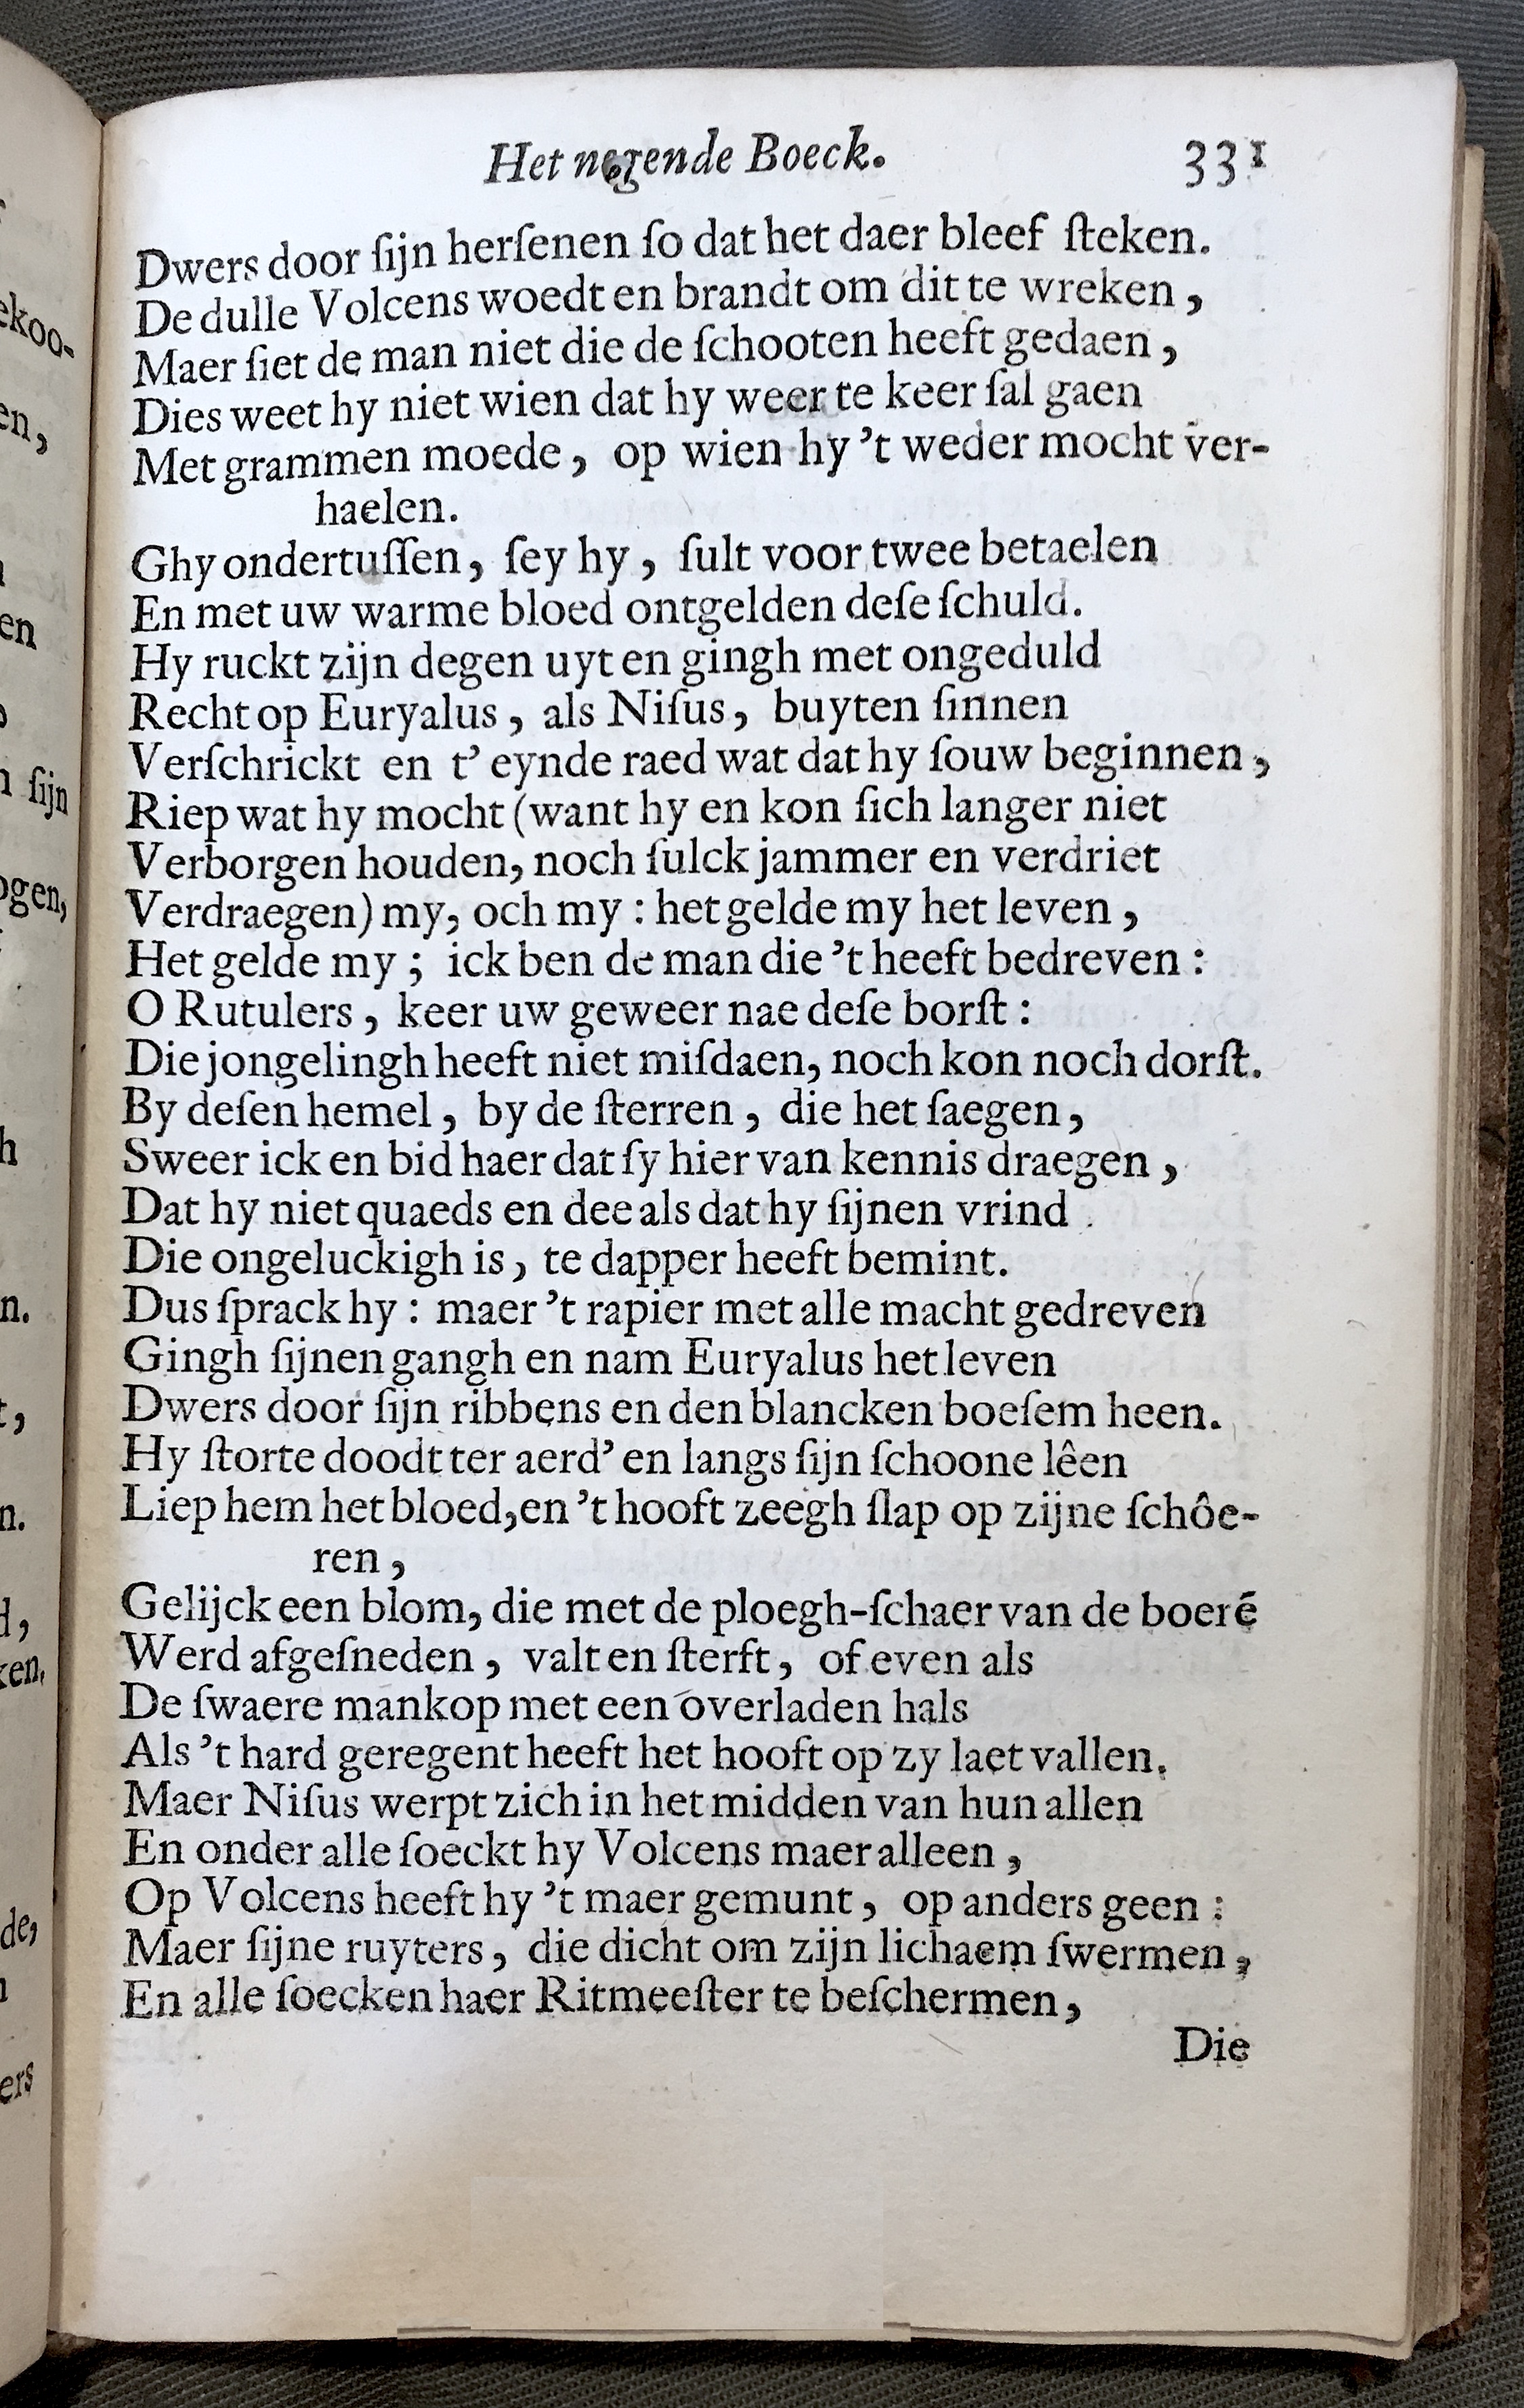 Het negende Boeck. 331
Dwers door ſijn herſenen ſo dat het daer bleef ſteken.
De dulle Volcens woedt en brandt om dit te wreken,
Maer ſiet de man niet die de ſchooten heeft gedaen,
Dies weet hy niet wien dat hy weer te keer ſal gaen
Met grammen moede, op wien hy 't weder mocht ver-
haelen.
Ghy ondertuſſen, ſey hy, ſult voor twee betaelen
En met uw warme bloed ontgelden deſe ſchuld.
Hy ruckt zijn degen uyt en gingh met ongeduld
Recht op Euryalus, als Niſus, buyten ſinnen
Verſchrickt en t' eynde raed wat dat hy ſouw beginnen,
Riep wat hy mocht (want hy en kon ſich langer niet
Verborgen houden, noch ſulck jammer en verdriet
Verdraegen) my, och my : het gelde my het leven,
Het gelde my ; ick ben de man die 't heeft bedreven :
O Rutulers, keer uw geweer nae deſe borſt :
Die jongelingh heeft niet miſdaen, noch kon noch dorſt.
By deſen hemel, by de ſterren, die het ſaegen,
Sweer ick en bid haer dat ſy hier van kennis draegen,
Dat hy niet quaeds en dee als dat hy ſijnen vrind
Die ongeluckigh is, te dapper heeft bemint.
Dus ſprack hy : maer 't rapier met alle macht gedreven
Gingh ſijnen gangh en nam Euryalus het leven
Dwers door ſijn ribbens en den blancken boeſem heen.
Hy ſtorte doodt ter aerd' en langs ſijn ſchoone lêen
Liep hem het bloed, en 't hooft zeegh ſlap op zijne ſchôe-
ren,
Gelijck een blom, die met de ploegh-ſchaer van de boerē
Werd afgeſneden, valt en ſterft, of even als
De ſwaere mankop met een overladen hals
Als 't hard geregent heeft het hooft op zy laet vallen.
Maer Niſus werpt zich in het midden van hun allen
En onder alle ſoeckt hy Volcens maer alleen,
Op Volcens heeft hy 't maer gemunt, op anders geen :
Maer ſijne ruyters, die dicht om zijn lichaem ſwermen,
En alle ſoecken haer Ritmeeſter te beſchermen,
Die